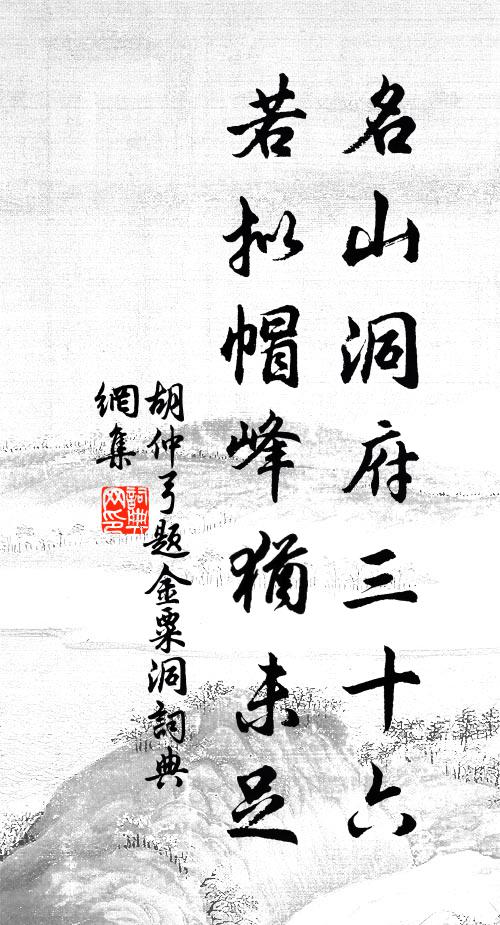 名山洞府三十六
若拟帽峰猶未足
胡仲弓题金粟洞詞典
網集
詞典
网印